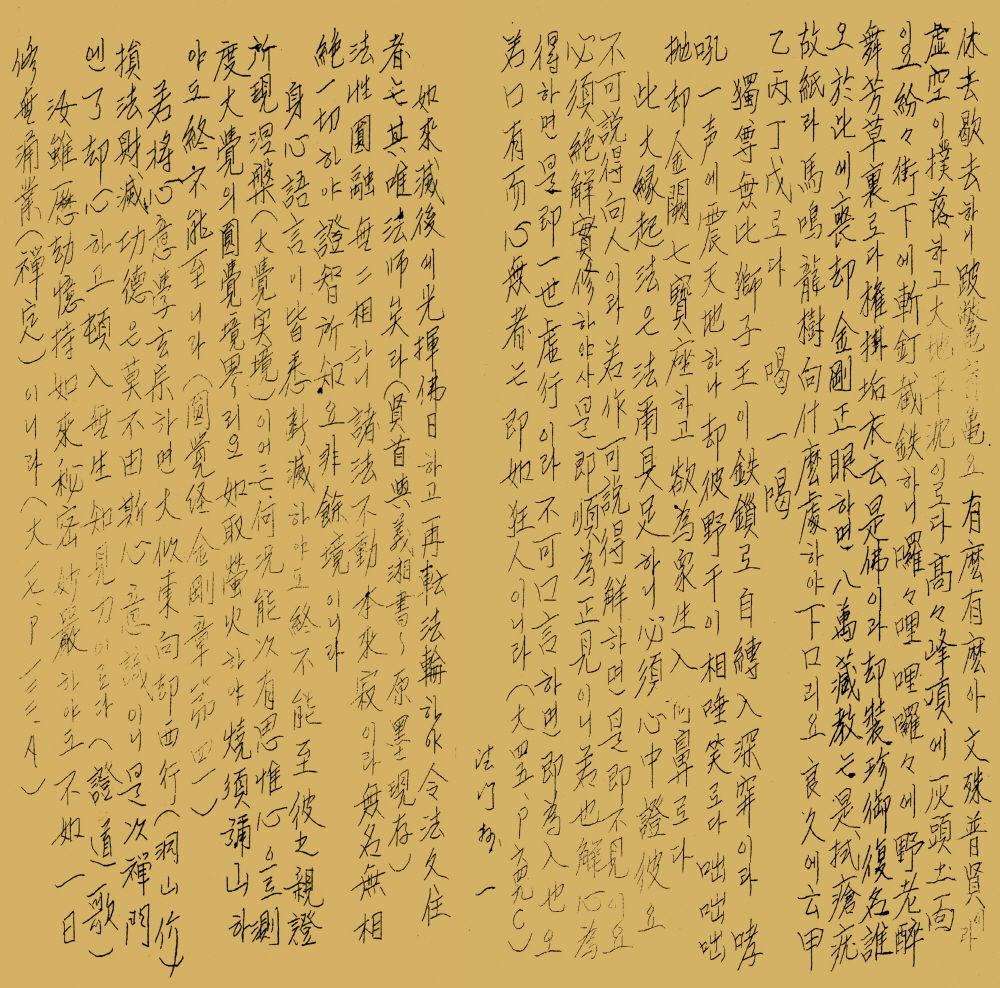 休去歇去하니 跛鱉盲龜요 有麽有麽아 文殊普賢이라
虛空이 撲落하고 大地平沈이로다 高々峰頂에 灰頭土面
이요 紛々街下에 斬釘截鉄하니 囉々哩哩囉々에 野老醉
舞芳草裏로다 權掛垢衣云是佛이라 却裝珍御復名誰
오 於此에 喪却金剛正眼하면 八萬藏敎는 是拭瘡疣
故紙라 馬鳴龍樹向什麽處하야 下口리요 良久에 云甲
乙丙丁戊로다 喝一喝
獨尊無比獅子王이 鉄鎖로 自縛入深穽이라 哮
吼一声에 震天地하니 却彼野干이 相唾笑로다 咄咄咄
抛却金闕七寶座하고 欲為衆生入 鼻로다
此大縁起法은 法甬具足하니 必須心中證彼요
不可說得向人이라 若作可說得解하면 是即不見이요
必須絶解實修하야사 是即順為正見이니 若也解心為
得하면 是即一世虛行이라 不可口言하면 即為入也요
若口有而心無者는 即如狂人이니라 (大四五, P C)
法门抄 一
如來滅後에 光揮佛日하고 再転法輪하야 令法久住
者는 其唯法師矣라 (賢首與義湘書~原墨現存)
法性圓融無二相하니 諸法不動本來寂이라 無名無相
絶一切하야 證智所知요 非餘境이니라
身心語言이 皆悉斷滅하야도 終不能至彼之親證
所現涅槃(大覺実境)이어든 何況能次有思惟心으로 測
度大覺의 圓覺境界리오 如取螢火하야 燒須彌山하
야도 終不能至니라 (圓覺経金剛章 節四一)
若將心意學玄宗하면 大似東向却西行 (洞山价)
損法財滅功德은 莫不由斯心意識이니 是次禪門
엔 了却心하고 頓入無生知見刀이로다 (證道歌)
汝雖歷劫憶持如來秘密妙嚴하야도 不如一日
修無漏業(禪定)이니라 (大一九, P 一三三, A)